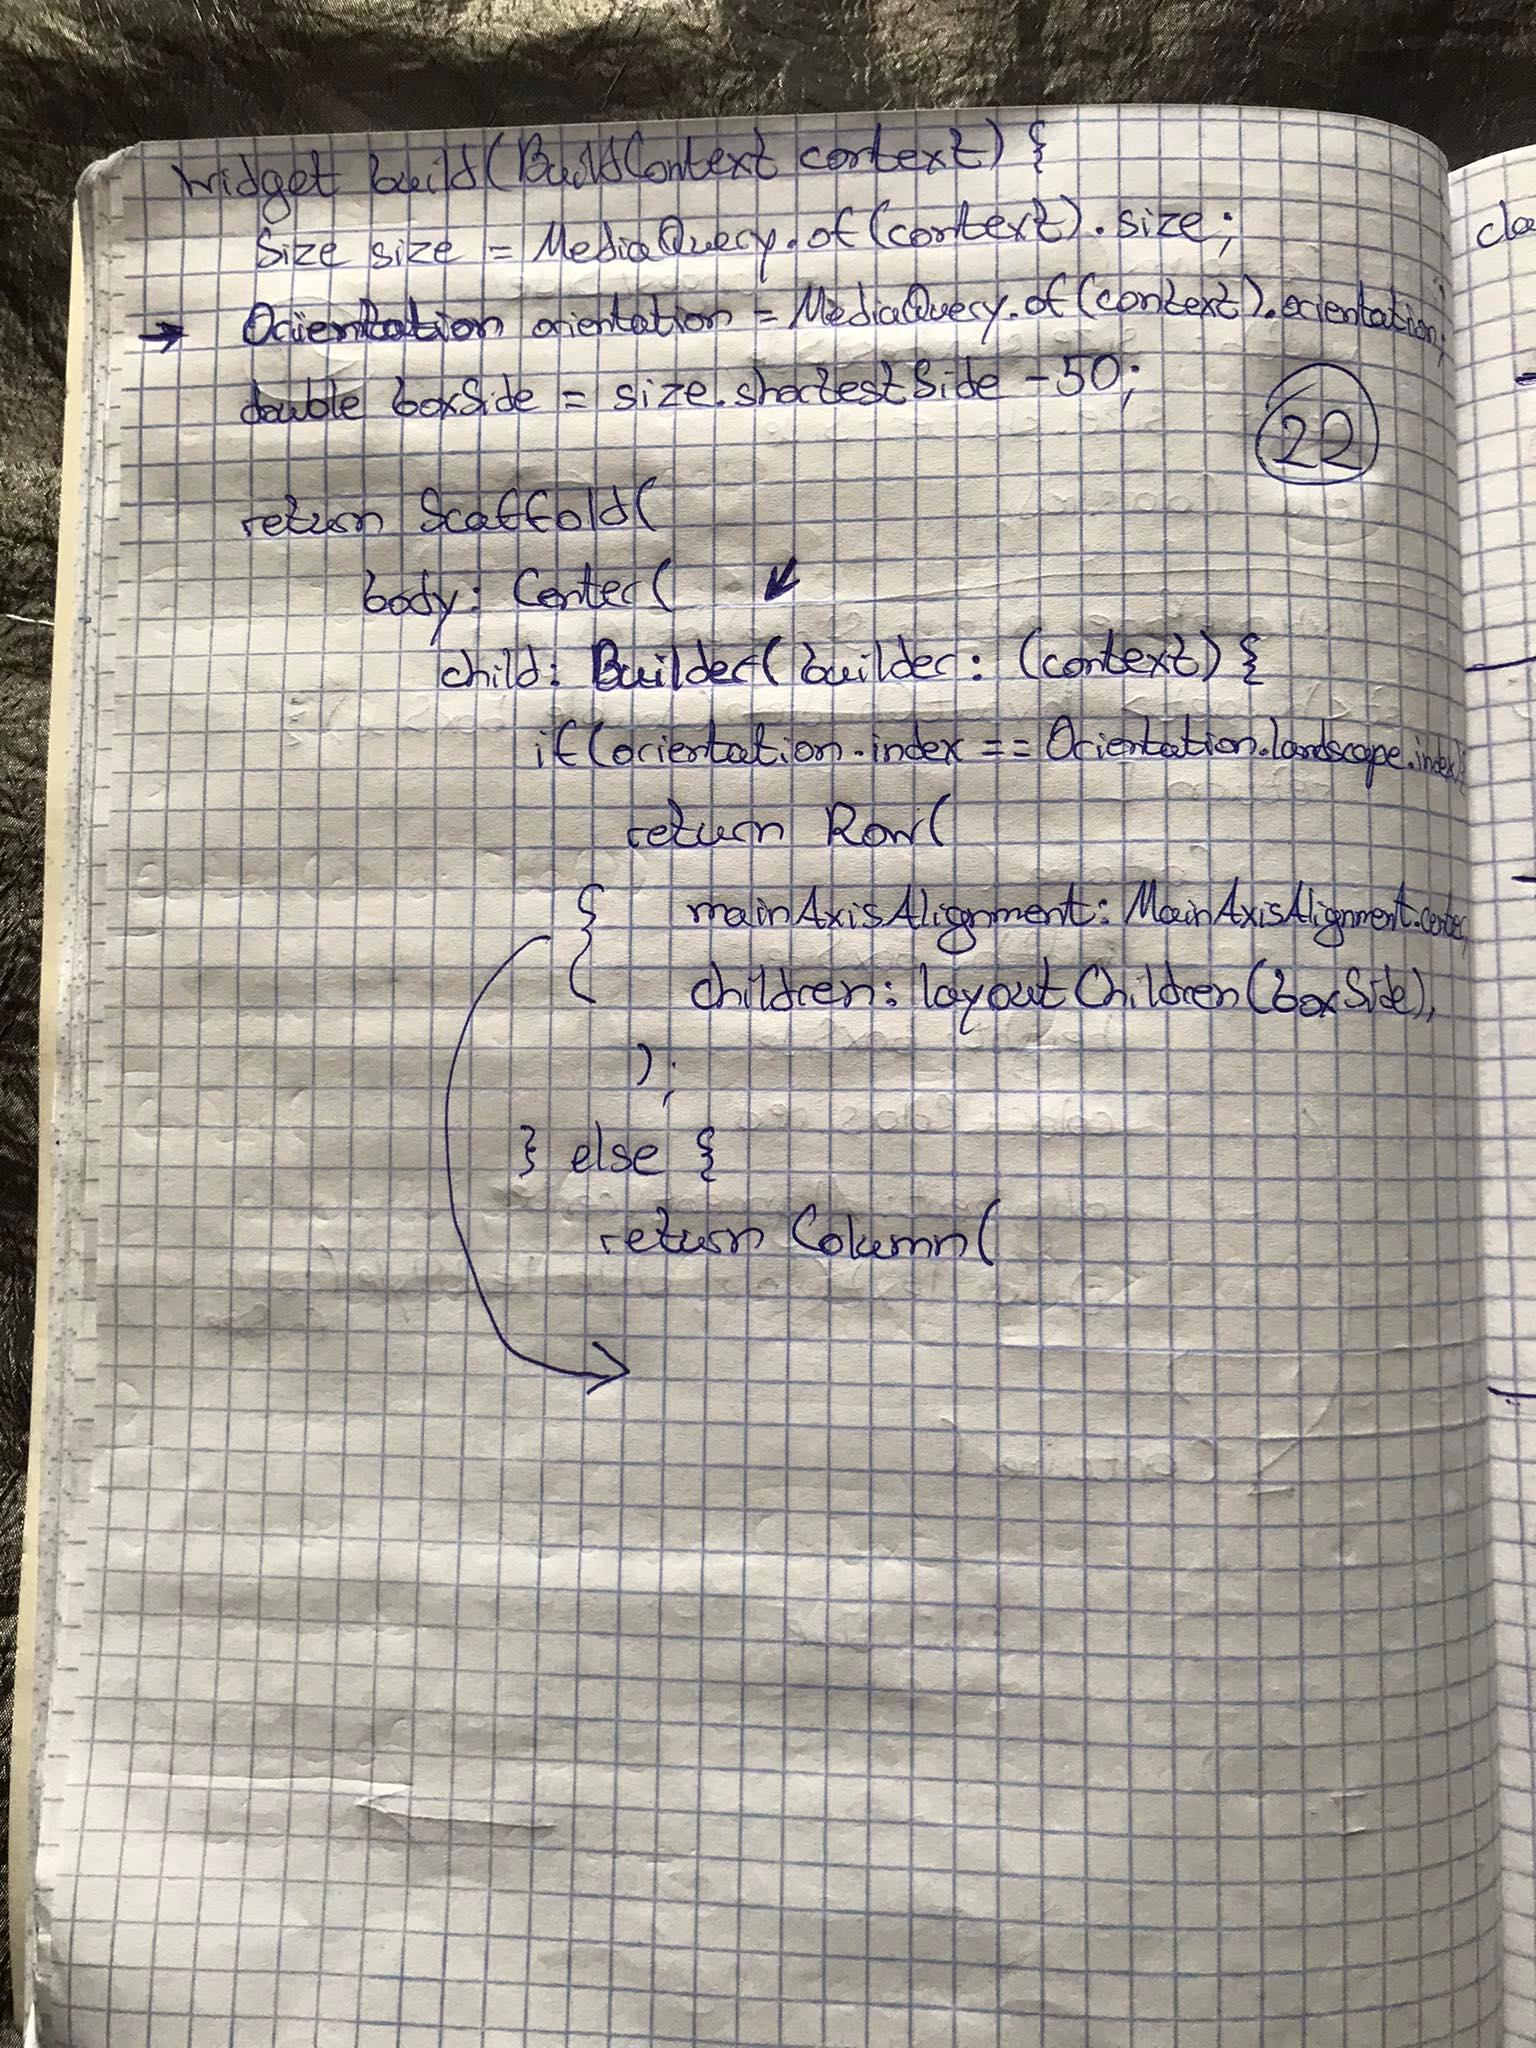 Widget build(BuildContext context) {
Size size = MediaQuery.of(context).size;
→ Orientation orientation = MediaQuery.of(context).orientation;
double boxSide = size.shortestSide - 50;
22
return Scaffold(
body: Center(
child: Builder(builder: (context) {
if(orientation.index == Orientation.landscape.index){
return Row(
mainAxisAlignment: MainAxisAlignment.center,
children: layoutChildren(boxSide),
);
} else {
return Column(
cla